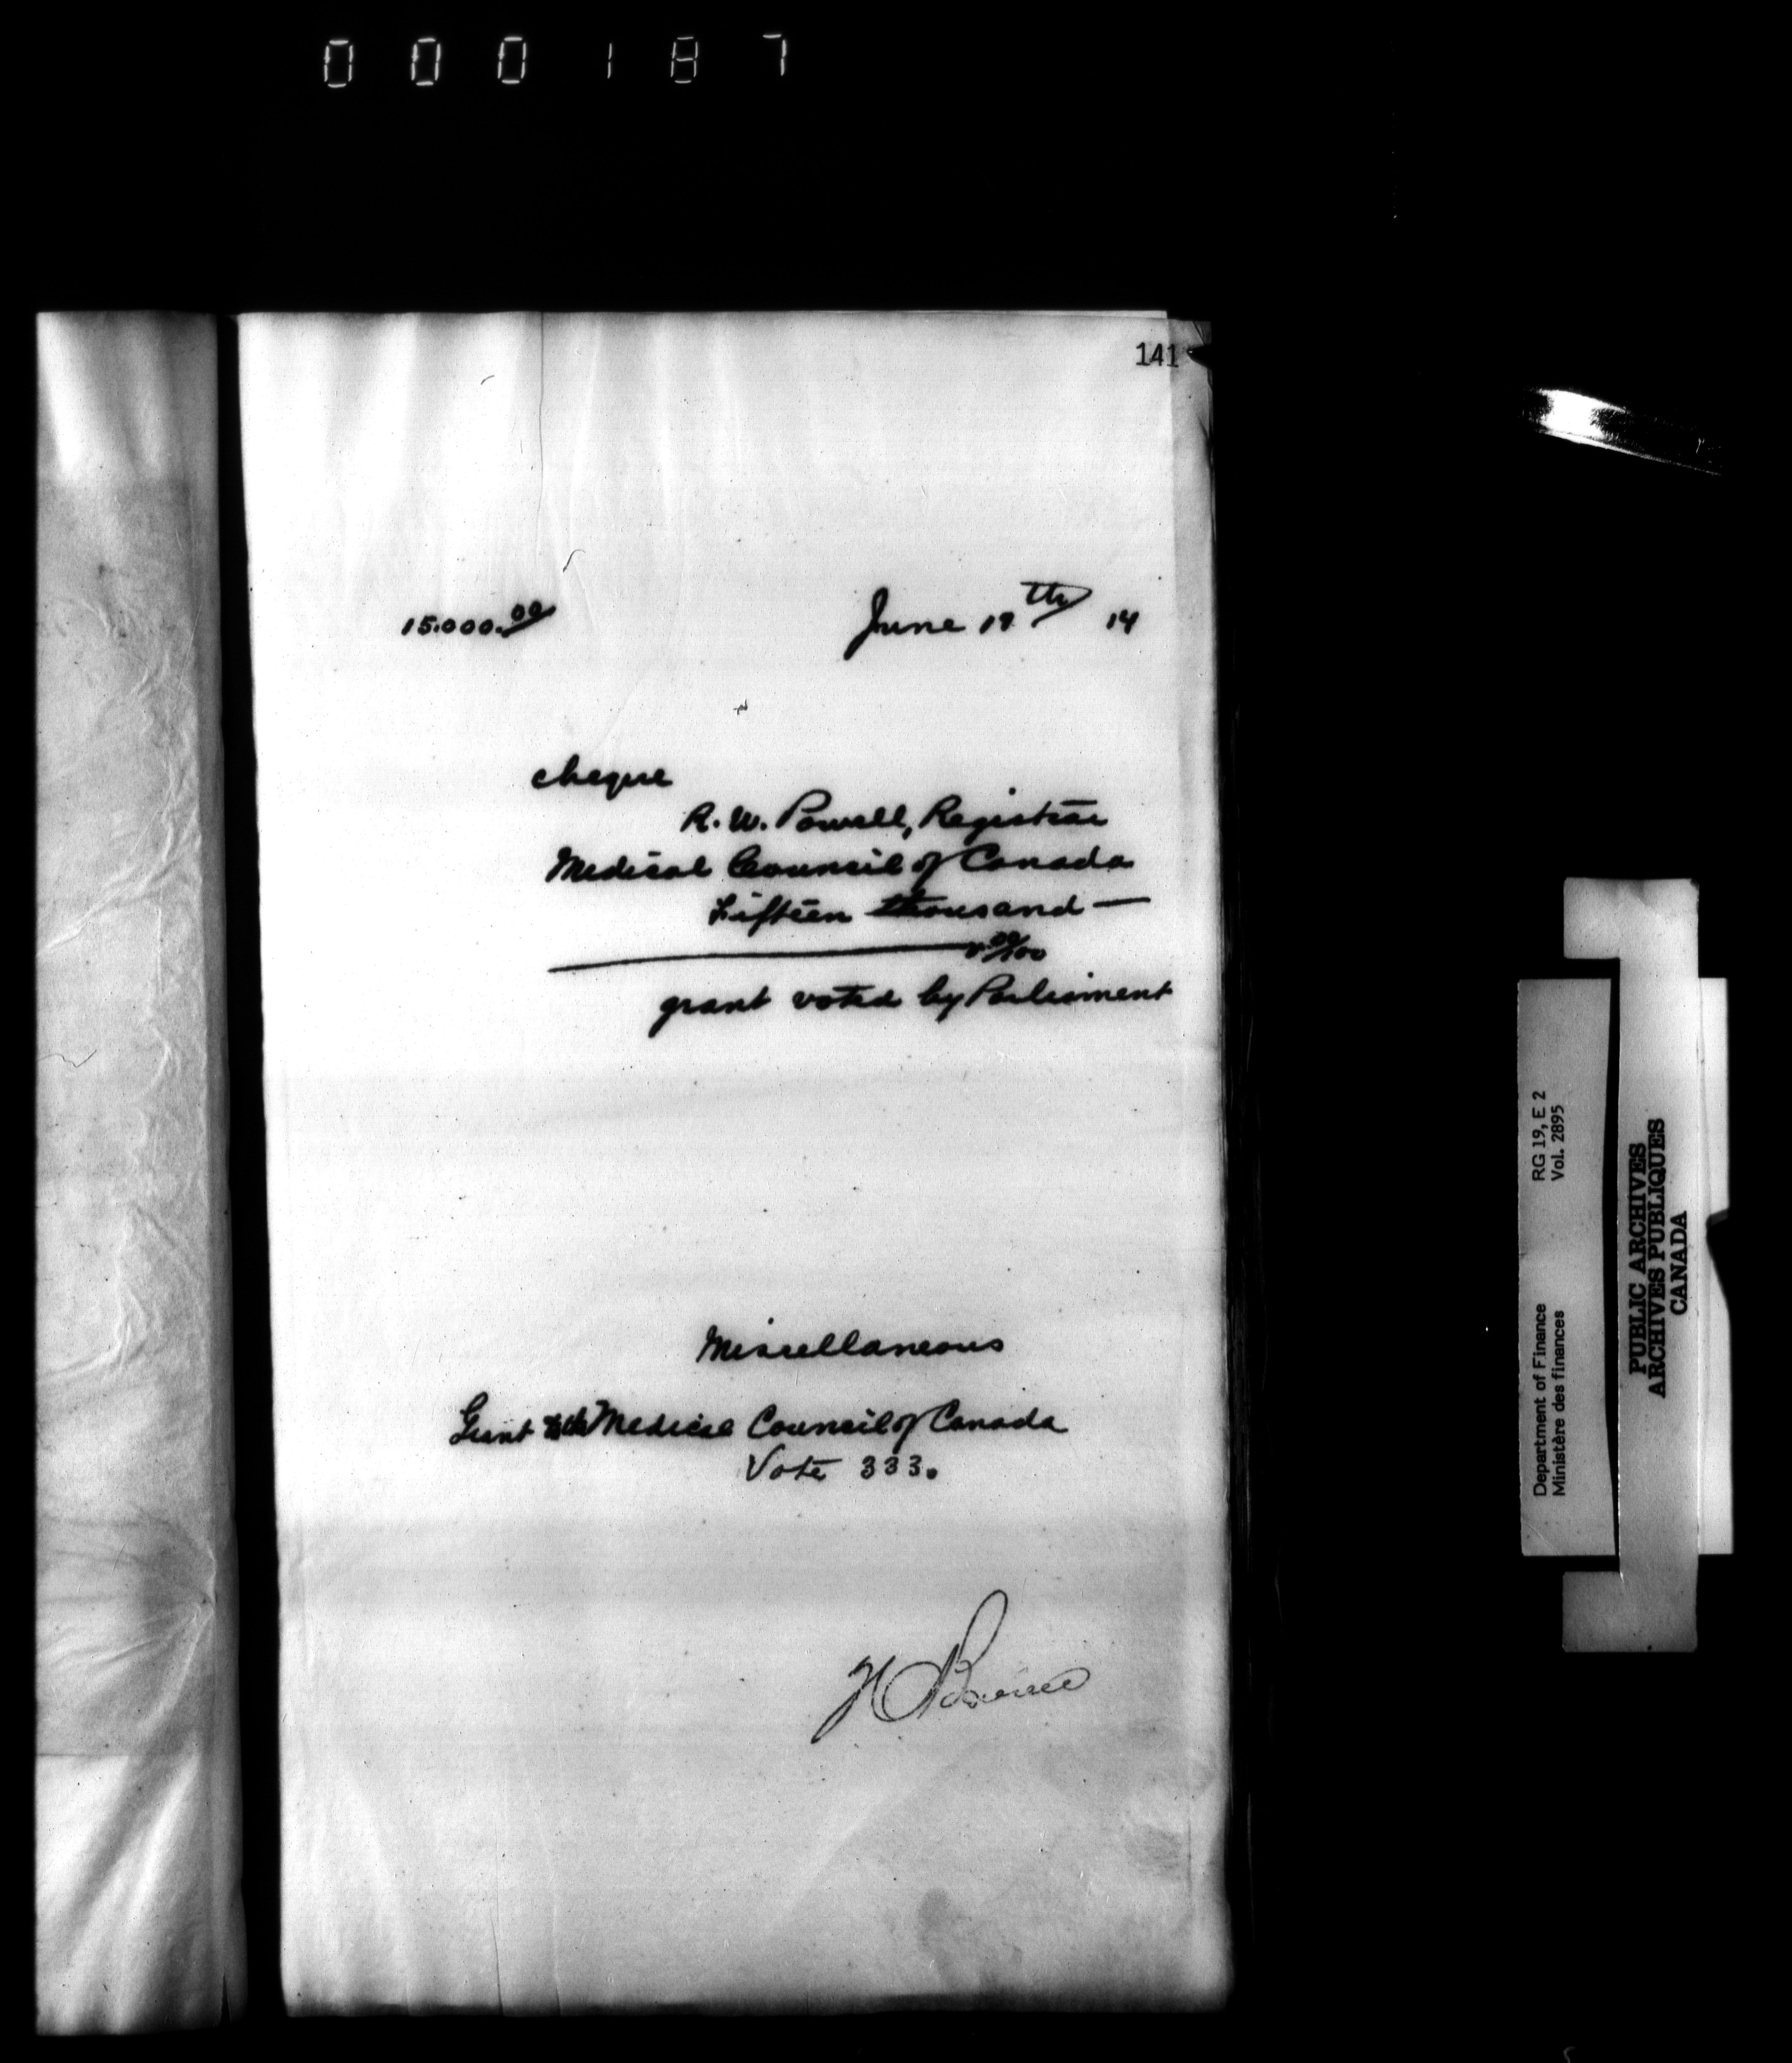 000187
141
15.000.00 June 19th 14
cheque
R. W. Powell, Registrar
Medical Council of Canada
Fifteen thousand —
00/100
grant voted by Parliament
Miscellaneous
Grant to the Medical Council of Canada
Vote 333.
Department of Finance RG 19, E 2
Ministère des finances Vol. 2895
PUBLIC ARCHIVES
ARCHIVES PUBLIQUES
CANADA